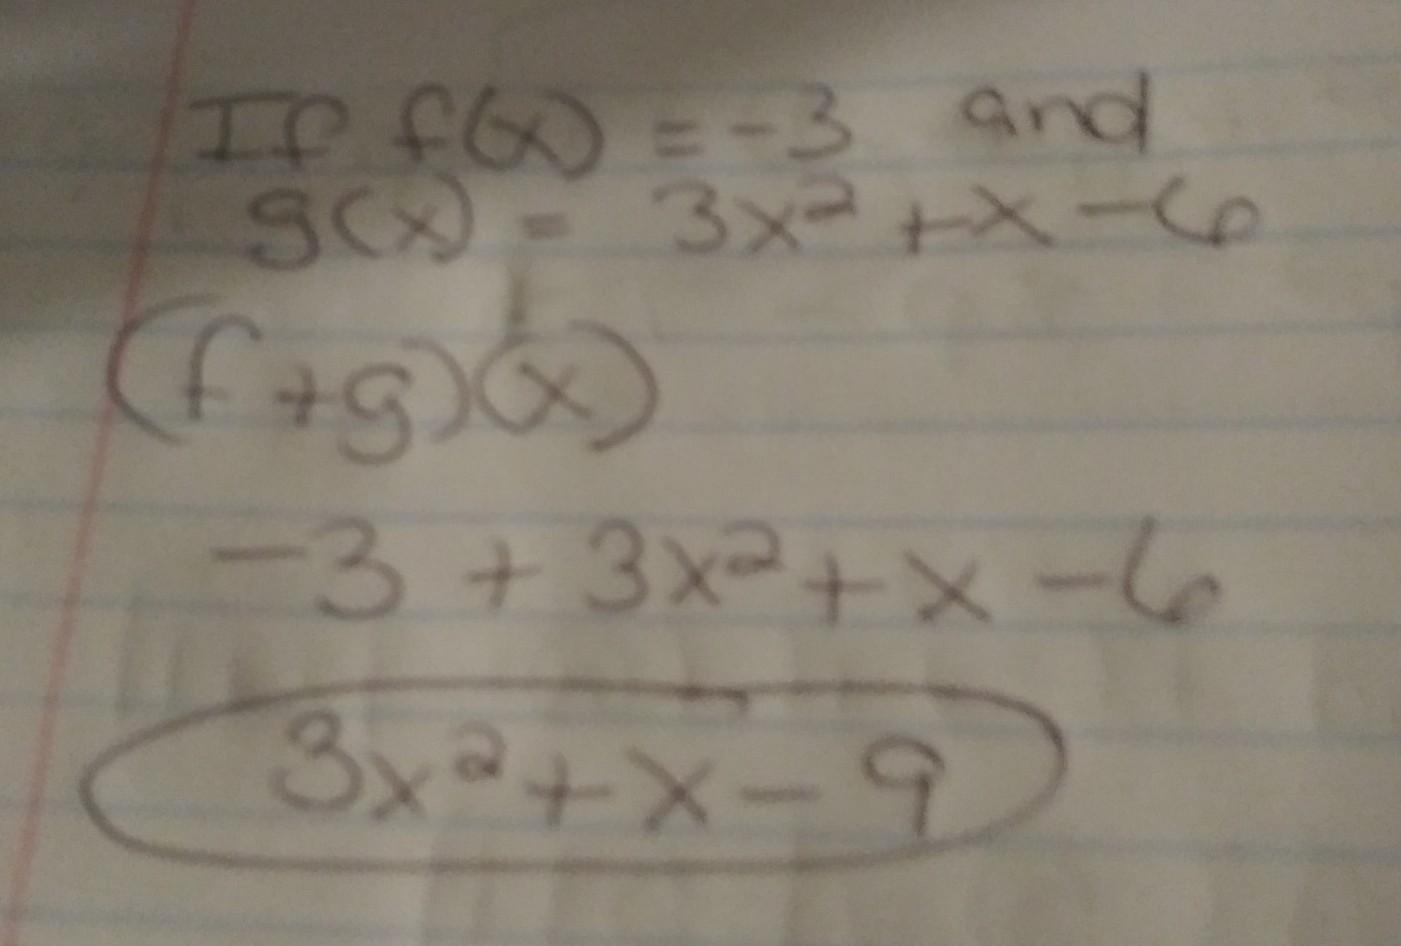 If f(x) = -3 and
g(x) = 3x² + x - 6
(f + g)(x)
-3 + 3x² + x - 6
3x² + x - 9